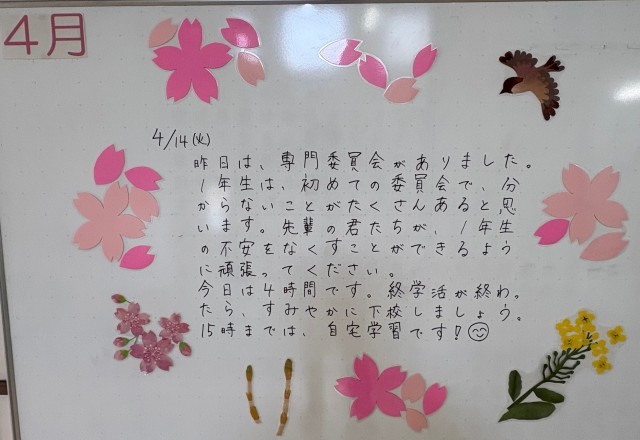 4月
4/14(火)
昨日は、専門委員会がありました。
1年生は、初めての委員会で、分
からないことがたくさんあると思
います。先輩の君たちが、1年生
の不安をなくすことができるよう
に頑張ってください。
今日は4時間です。終学活が終わっ
たら、すみやかに下校しましょう。
15時までは、自宅学習です!